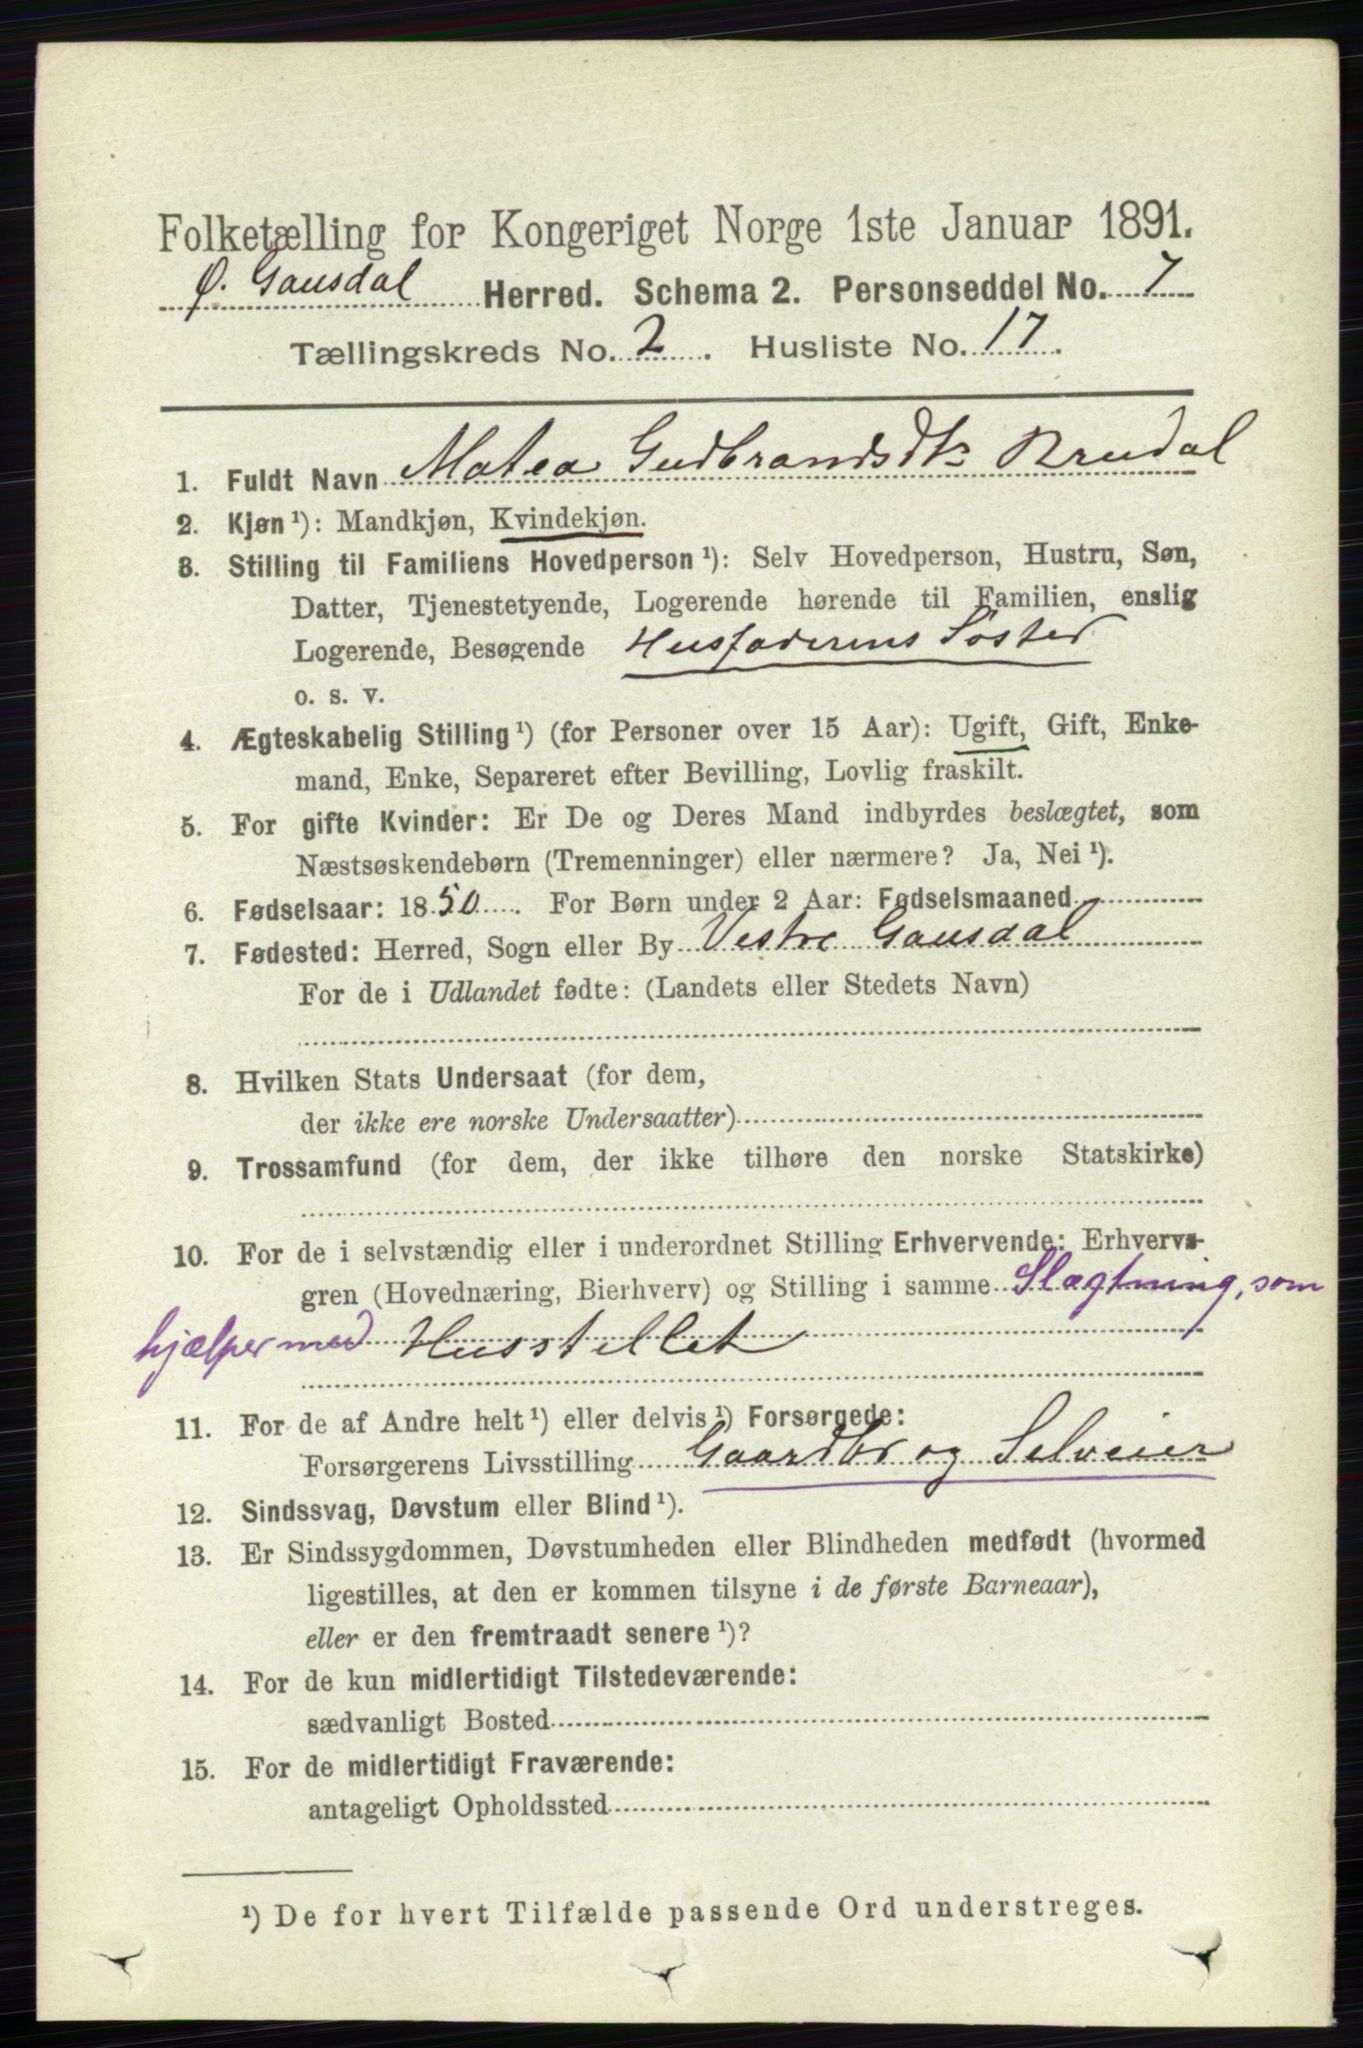 Folketælling for Kongeriget Norge 1ste Januar 1891.
Ø. Gausdal Herred. Schema 2. Personseddel No. 7
Tællingskreds No. 2. Husliste No. 17.
1. Fuldt Navn Matea Gudbrandsdtr Brudal
2. Kjøn ¹): Mandkjøn, Kvindekjøn.
3. Stilling til Familiens Hovedperson ¹): Selv Hovedperson, Hustru, Søn,
Datter, Tjenestetyende, Logerende hørende til Familien, enslig
Logerende, Besøgende Husfaderens Søster
o. s. v.
4. Ægteskabelig Stilling ¹) (for Personer over 15 Aar): Ugift, Gift, Enke-
mand, Enke, Separeret efter Bevilling, Lovlig fraskilt.
5. For gifte Kvinder: Er De og Deres Mand indbyrdes beslægtet, som
Næstsøskendebørn (Tremenninger) eller nærmere? Ja, Nei ¹).
6. Fødselsaar: 1850. For Børn under 2 Aar: Fødselsmaaned
7. Fødested: Herred, Sogn eller By Vestre Gausdal
For de i Udlandet fødte: (Landets eller Stedets Navn)
8. Hvilken Stats Undersaat (for dem,
der ikke ere norske Undersaatter)
9. Trossamfund (for dem, der ikke tilhøre den norske Statskirke)
10. For de i selvstændig eller i underordnet Stilling Erhvervende: Erhvervs-
gren (Hovednæring, Bierhverv) og Stilling i samme Slægtning, som
hjælper med Husstellet
11. For de af Andre helt ¹) eller delvis ¹) Forsørgede:
Forsørgerens Livsstilling Gaardbr og Selveier
12. Sindssvag, Døvstum eller Blind ¹).
13. Er Sindssygdommen, Døvstumheden eller Blindheden medfødt (hvormed
ligestilles, at den er kommen tilsyne i de første Barneaar),
eller er den fremtraadt senere ¹)?
14. For de kun midlertidigt Tilstedeværende:
sædvanligt Bosted
15. For de midlertidigt Fraværende:
antageligt Opholdssted
¹) De for hvert Tilfælde passende Ord understreges.